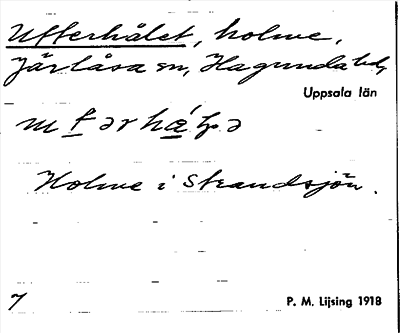 Ufterhålet, holme,
Järlåsa sn, Hagunda hd,
Uppsala län
Holme i Strandsjön.
7
P. M. Lijsing 1918